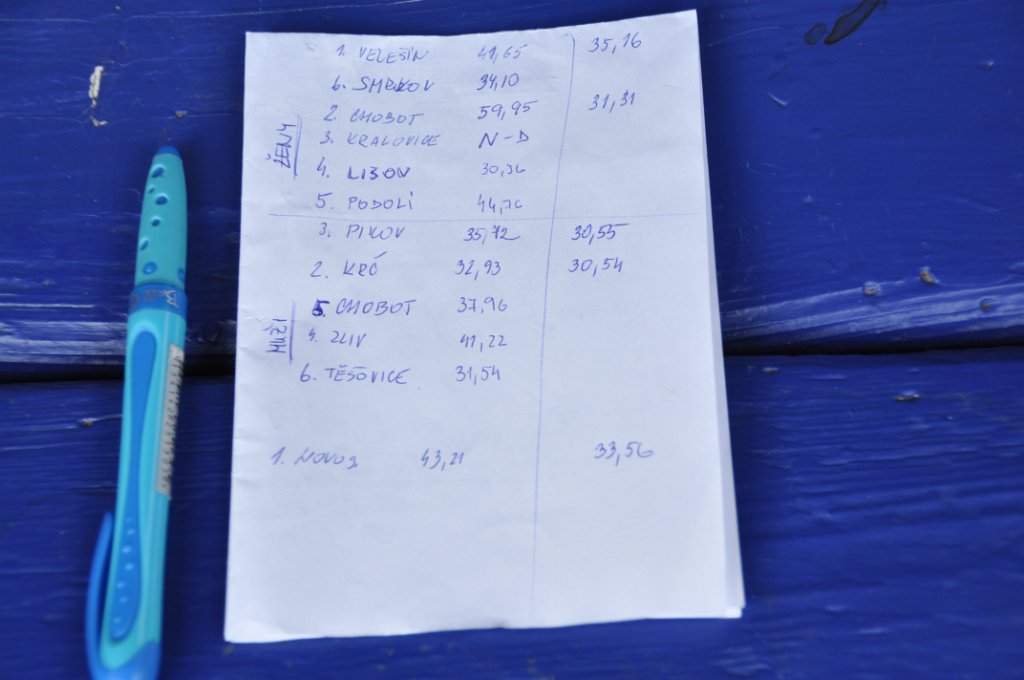 1. VELEŠÍN 41,65 35,16
6. SMRKOV 34,10
2. CHOBOT 59,95 31,31
ŽENY
3. KRALOVICE N-D
4. LIŠOV 30,36
5. PODOLÍ 44,76
3. PIKOV 35,72 30,55
2. KRČ 32,93 30,54
5. CHOBOT 37,96
MUŽI
4. ZLIV 41,22
6. TĚŠOVICE 31,54
1. 43,21 33,56